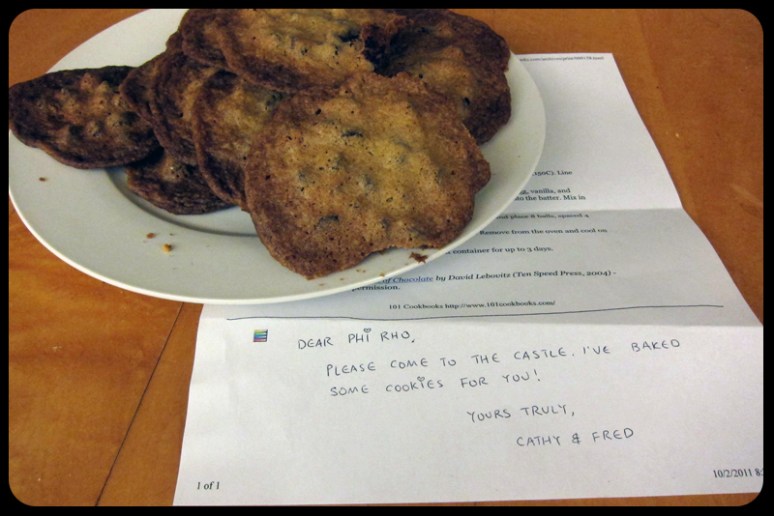 150C). Line
vanilla, and
to the batter. Mix in
place 8 balls, spaced 4
Remove from the oven and cool on
container for up to 3 days.
of Chocolate by David Lebovitz (Ten Speed Press, 2004) -
permission.
101 Cookbooks http://www.101cookbooks.com/
DEAR PHI RHO,
PLEASE COME TO THE CASTLE. I'VE BAKED
SOME COOKIES FOR YOU!
YOURS TRULY,
CATHY & FRED
1 of 1
10/2/2011